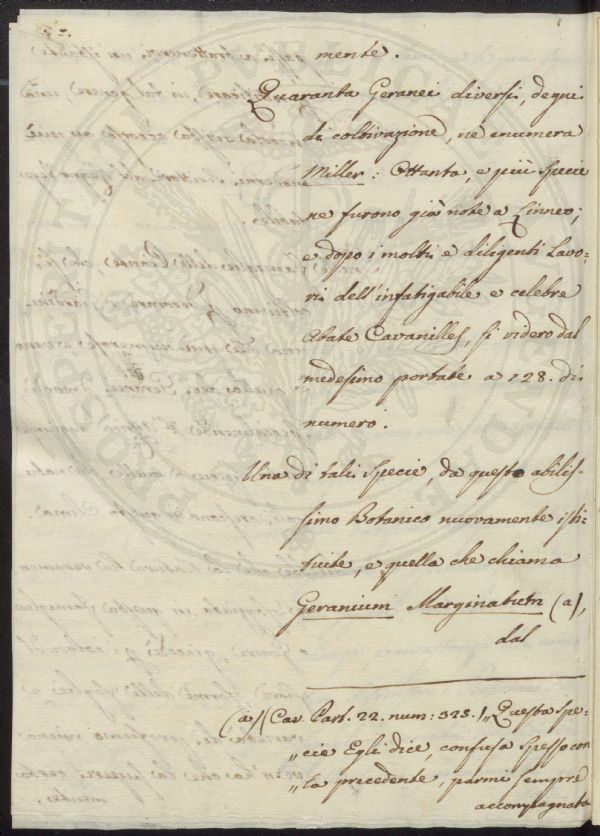 mente.
Quaranta Geranei diversi, degni
di coltivazione, ne enumera
Miller: Ottanta, e più specie
ne furono già note a Linneo;
e dopo i molti e diligenti Lavo-
ri dell'infatigabile e celebre
Abate Cavanilles, si videro dal
medesimo portate a 128. di
numero.
Una di tali specie, da questo abilis-
simo Botanico nuovamente isti-
tuite, e quella che chiama
Geranium Marginatum (a),
dal
(a) (Cav. Part. 22. num: 323.) „Questa spe-
„cie Egli dice, confusa spesso con
„la precedente, parmi sempre
accompagnata